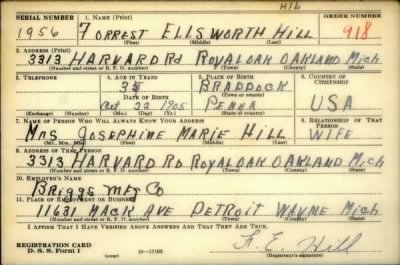 HIL
SERIAL NUMBER 1. NAME (Print) ORDER NUMBER
1956 FORREST ELLSWORTH HILL 918
(First) (Middle) (Last)
2. ADDRESS (Print)
3313 HARVARD Rd ROYAL OAK OAKLAND Mich
(Number and street or R. F. D. number) (Town) (County) (State)
3. TELEPHONE 4. AGE IN YEARS 5. PLACE OF BIRTH 6. COUNTRY OF CITIZENSHIP
35 BRADDOCK
DATE OF BIRTH (Town or county)
Oct 22 1905 PENNA USA
(Exchange) (Number) (Mo.) (Day) (Yr.) (State or country)
7. NAME OF PERSON WHO WILL ALWAYS KNOW YOUR ADDRESS 8. RELATIONSHIP OF THAT PERSON
MRS JOSEPHINE MARIE HILL WIFE
(Mr., Mrs., Miss) (First) (Middle) (Last)
9. ADDRESS OF THAT PERSON
3313 HARVARD RD ROYAL OAK OAKLAND Mich
(Number and street or R. F. D. number) (Town) (County) (State)
10. EMPLOYER'S NAME
BRIGGS MFG CO
11. PLACE OF EMPLOYMENT OR BUSINESS
11631 MACK AVE DETROIT WAYNE Mich
(Number and street or R. F. D. number) (Town) (County) (State)
I AFFIRM THAT I HAVE VERIFIED ABOVE ANSWERS AND THAT THEY ARE TRUE.
REGISTRATION CARD
D. S. S. Form 1 16-17105 F. E. Hill
(Registrant's signature)